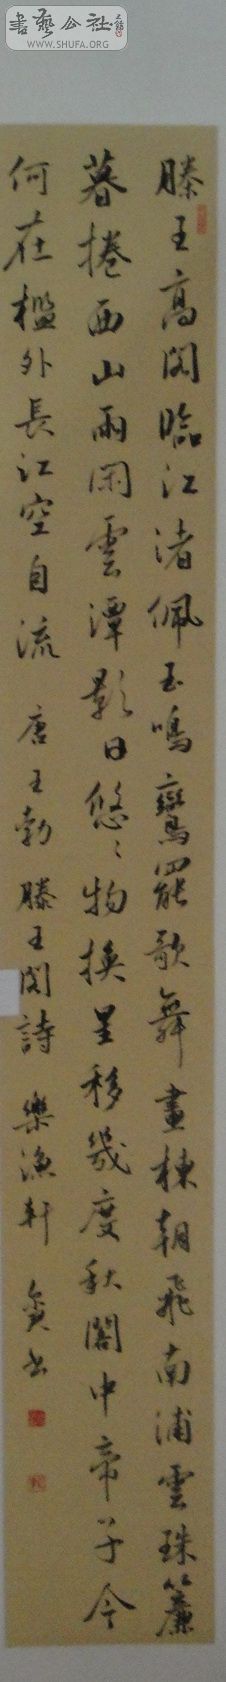 書藝公社
WWW.SHUFA.ORG
滕王高閣臨江渚佩玉鳴鸞罷歌舞畫棟朝飛南浦雲珠簾
暮捲西山雨閑雲潭影日悠〻物換星移幾度秋閣中帝子今
何在檻外長江空自流 唐王勃滕王閣詩 樂漁軒 書